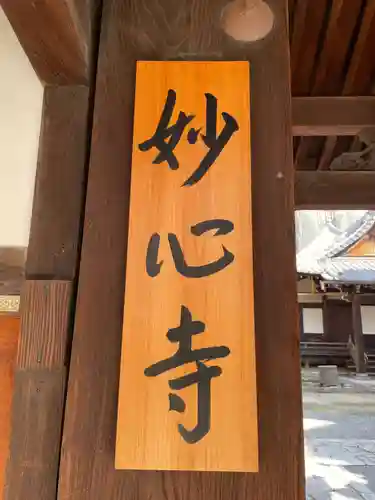 妙心寺